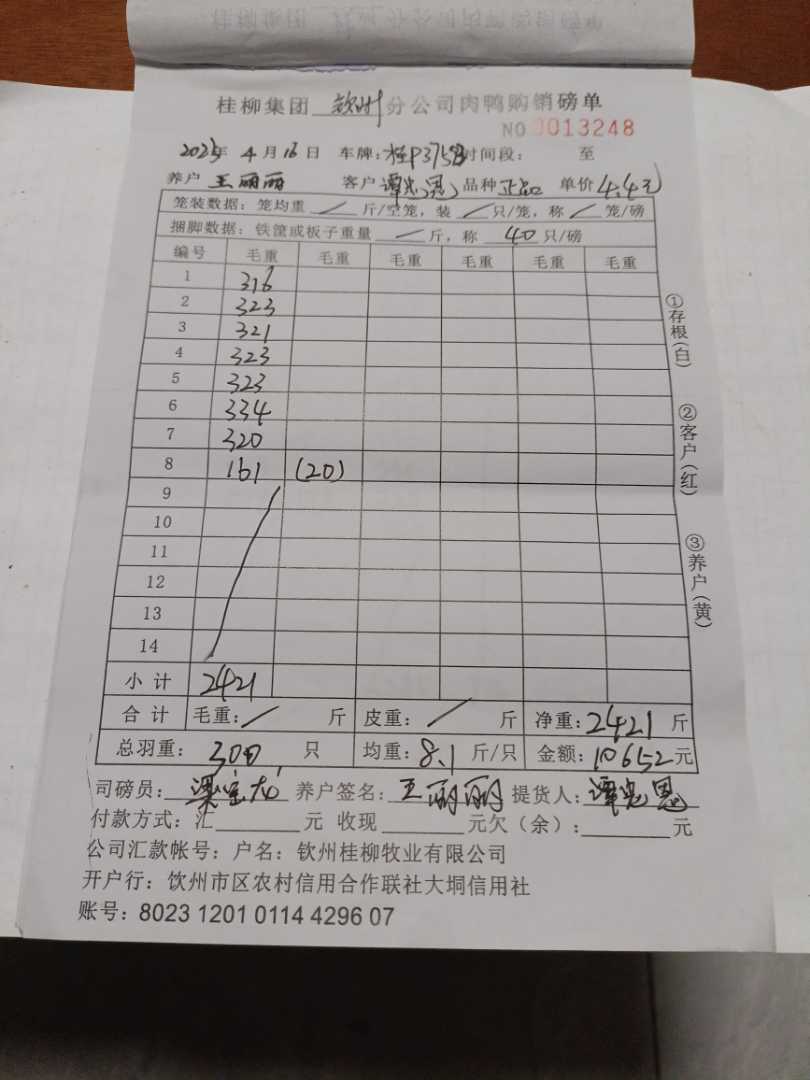 桂柳集团 钦州 分公司肉鸭购销磅单
NO 0013248
2025年 4月16日 车牌:桂P3758 时间段: 至
养户 王丽丽 客户 谭忠恩 品种 正品 单价 4.4元
笼装数据:笼均重 / 斤/空笼,装 / 只/笼,称 / 笼/磅
捆脚数据:铁筐或板子重量 / 斤,称 40 只/磅
编号 毛重 毛重 毛重 毛重 毛重 毛重
1 316
2 323
3 321
4 323
5 323
6 334
7 320
8 161 (20)
9
10
11
12
13
14
小计 2421
合计 毛重:/ 斤 皮重:/ 斤 净重:2421 斤
总羽重: 300 只 均重:8.1 斤/只 金额:10652元
司磅员: 养户签名:王丽丽 提货人:谭忠恩
付款方式:汇 元 收现 元欠(余): 元
公司汇款帐号:户名:钦州桂柳牧业有限公司
开户行:饮州市区农村信用合作联社大垌信用社
账号:8023 1201 0114 4296 07
①存根(白)
②客户(红)
③养户(黄)